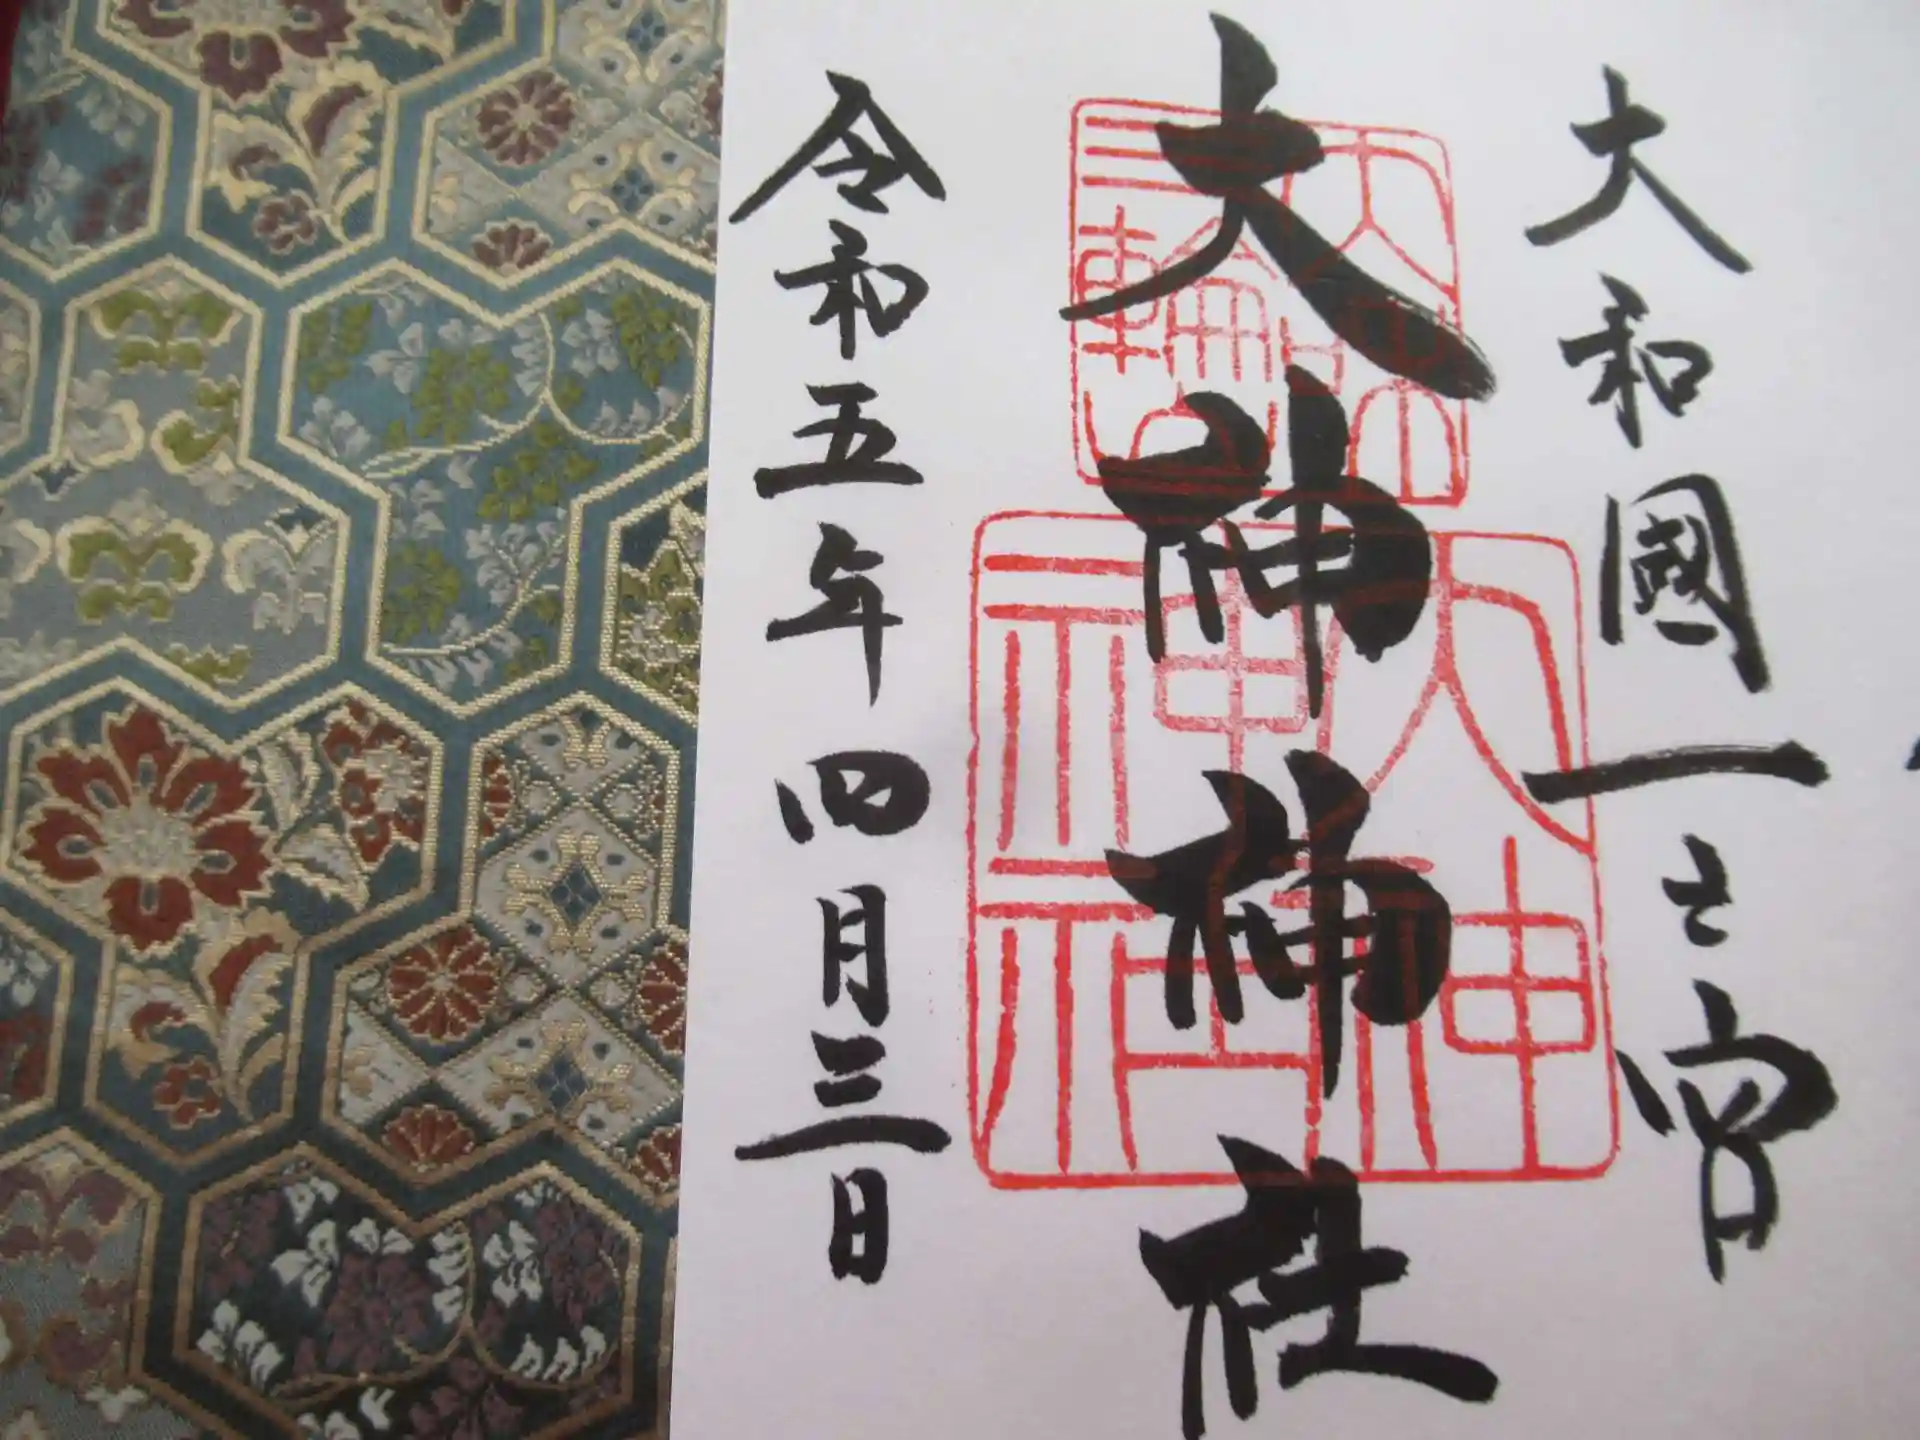 大和國一之宮
大神神社
大神神社
令和五年四月三日